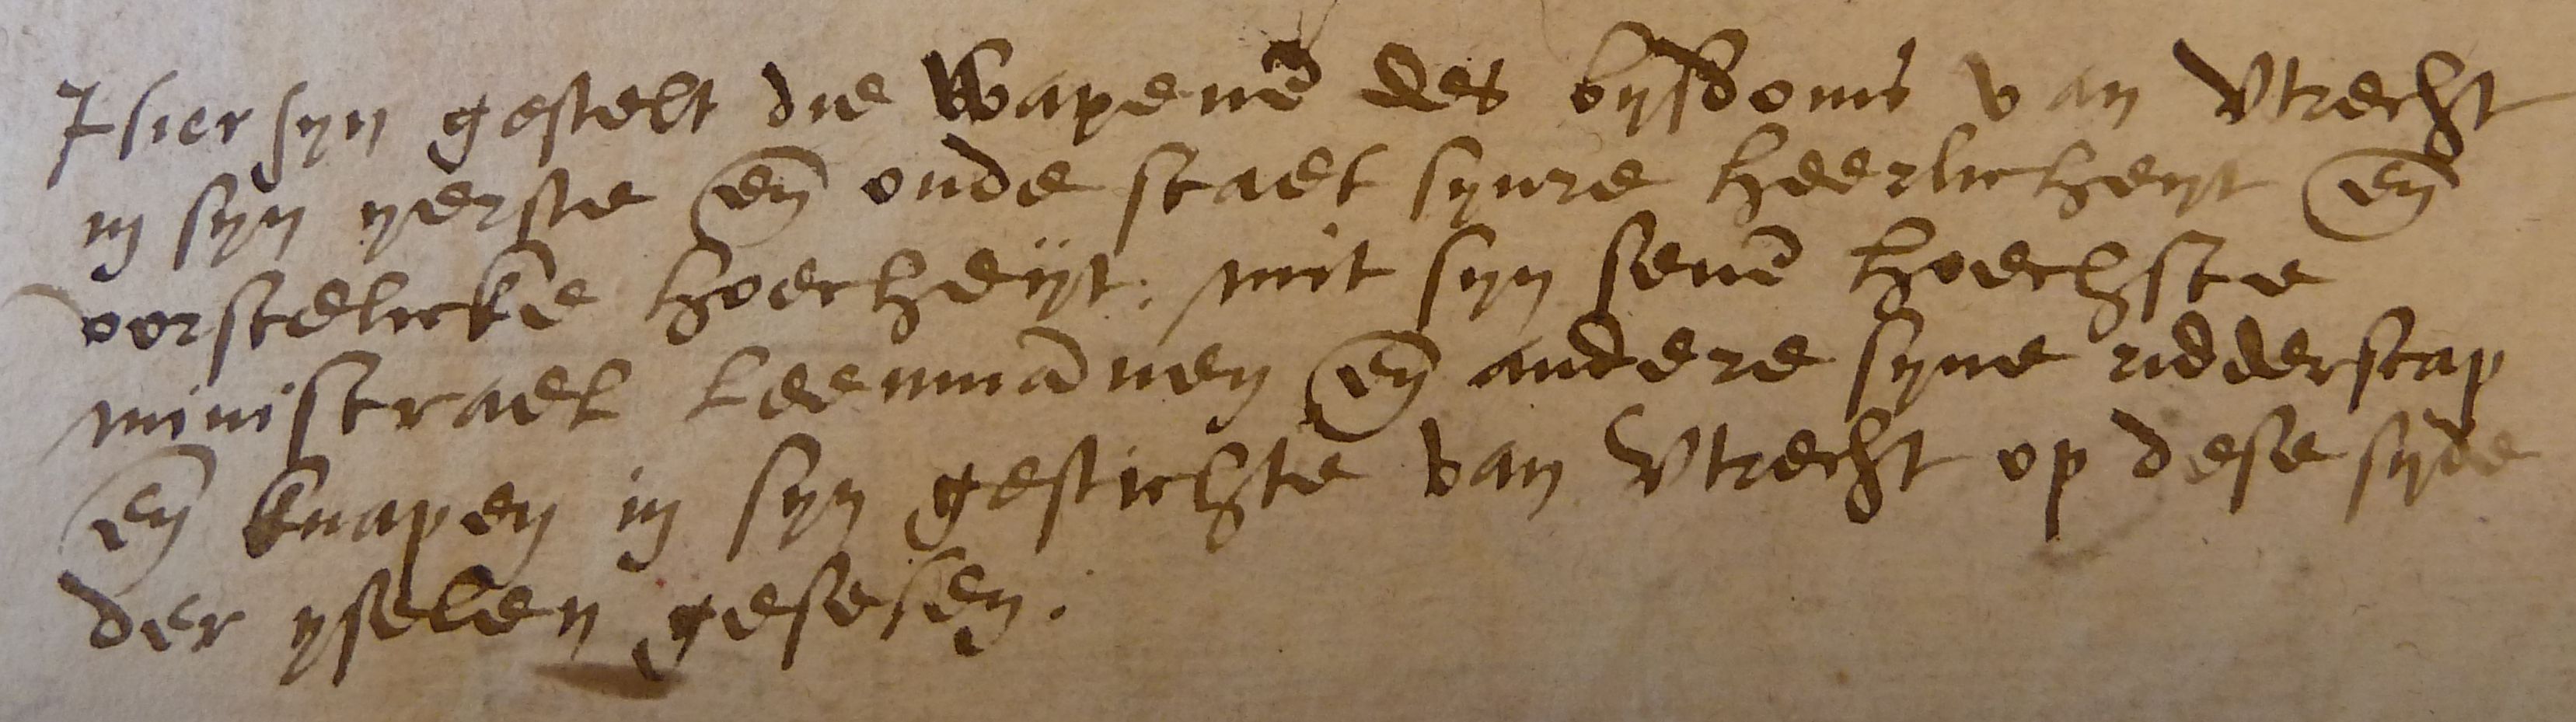 Hier syn gestelt die Wapenē des bysdoms van Vtrecht
in syn yerste eñ oude staet synre heerlicheyt eñ
vorstelicke hoecheyt. mit syn seuē hoechste
ministrael leenmānen eñ andere syne ridderscap
eñ knapen in syn gestichte van Vtrecht op dese syde
der yselen gesesen.